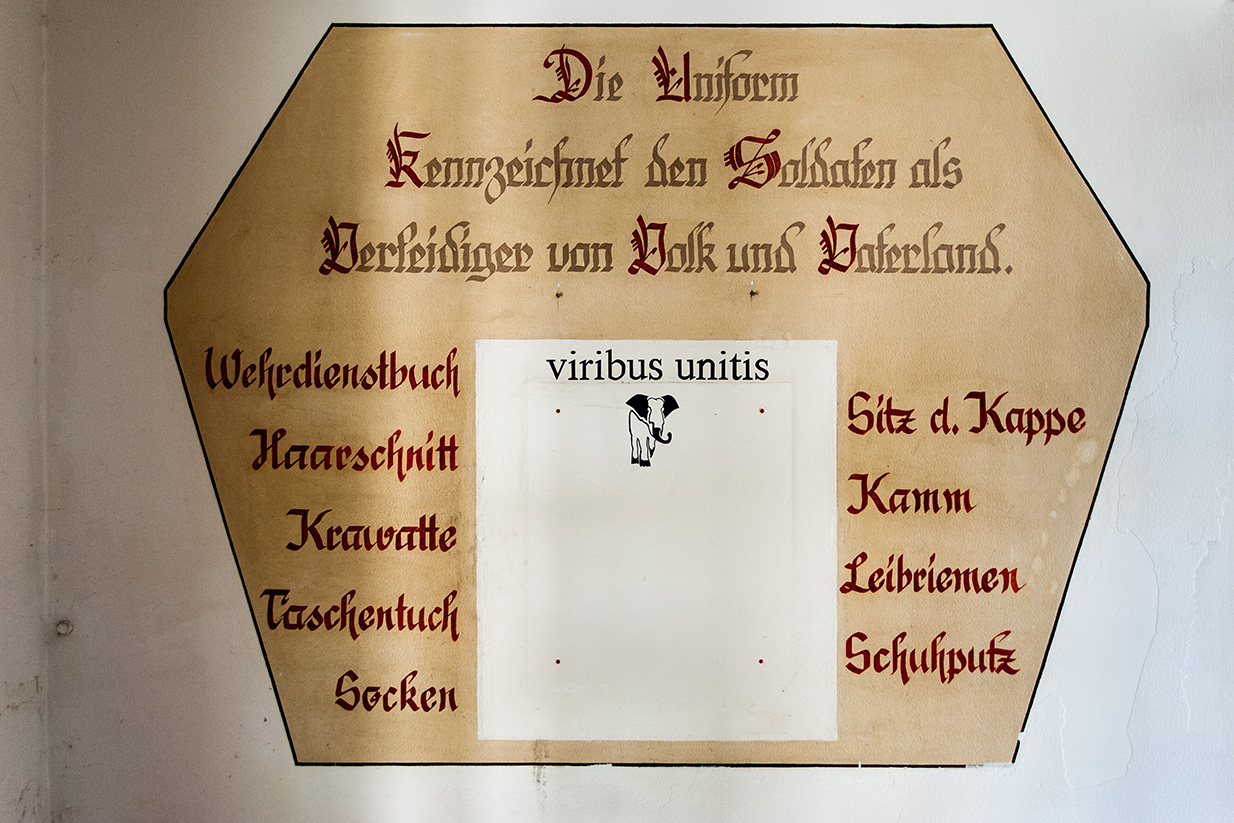 Die Uniform
Kennzeichnet den Soldaten als
Verteidiger von Volk und Vaterland.
viribus unitis
Wehrdienstbuch
Haarschnitt
Krawatte
Taschentuch
Socken
Sitz d. Kappe
Kamm
Leibriemen
Schuhputz